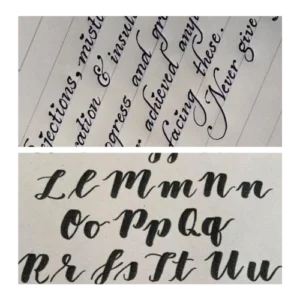 ejections, mist
ration & insul
ogress and gr
r achieved any
facing these.
Never give
Ll Mm Nn
Oo Pp Qq
Rr Ss Tt Uu